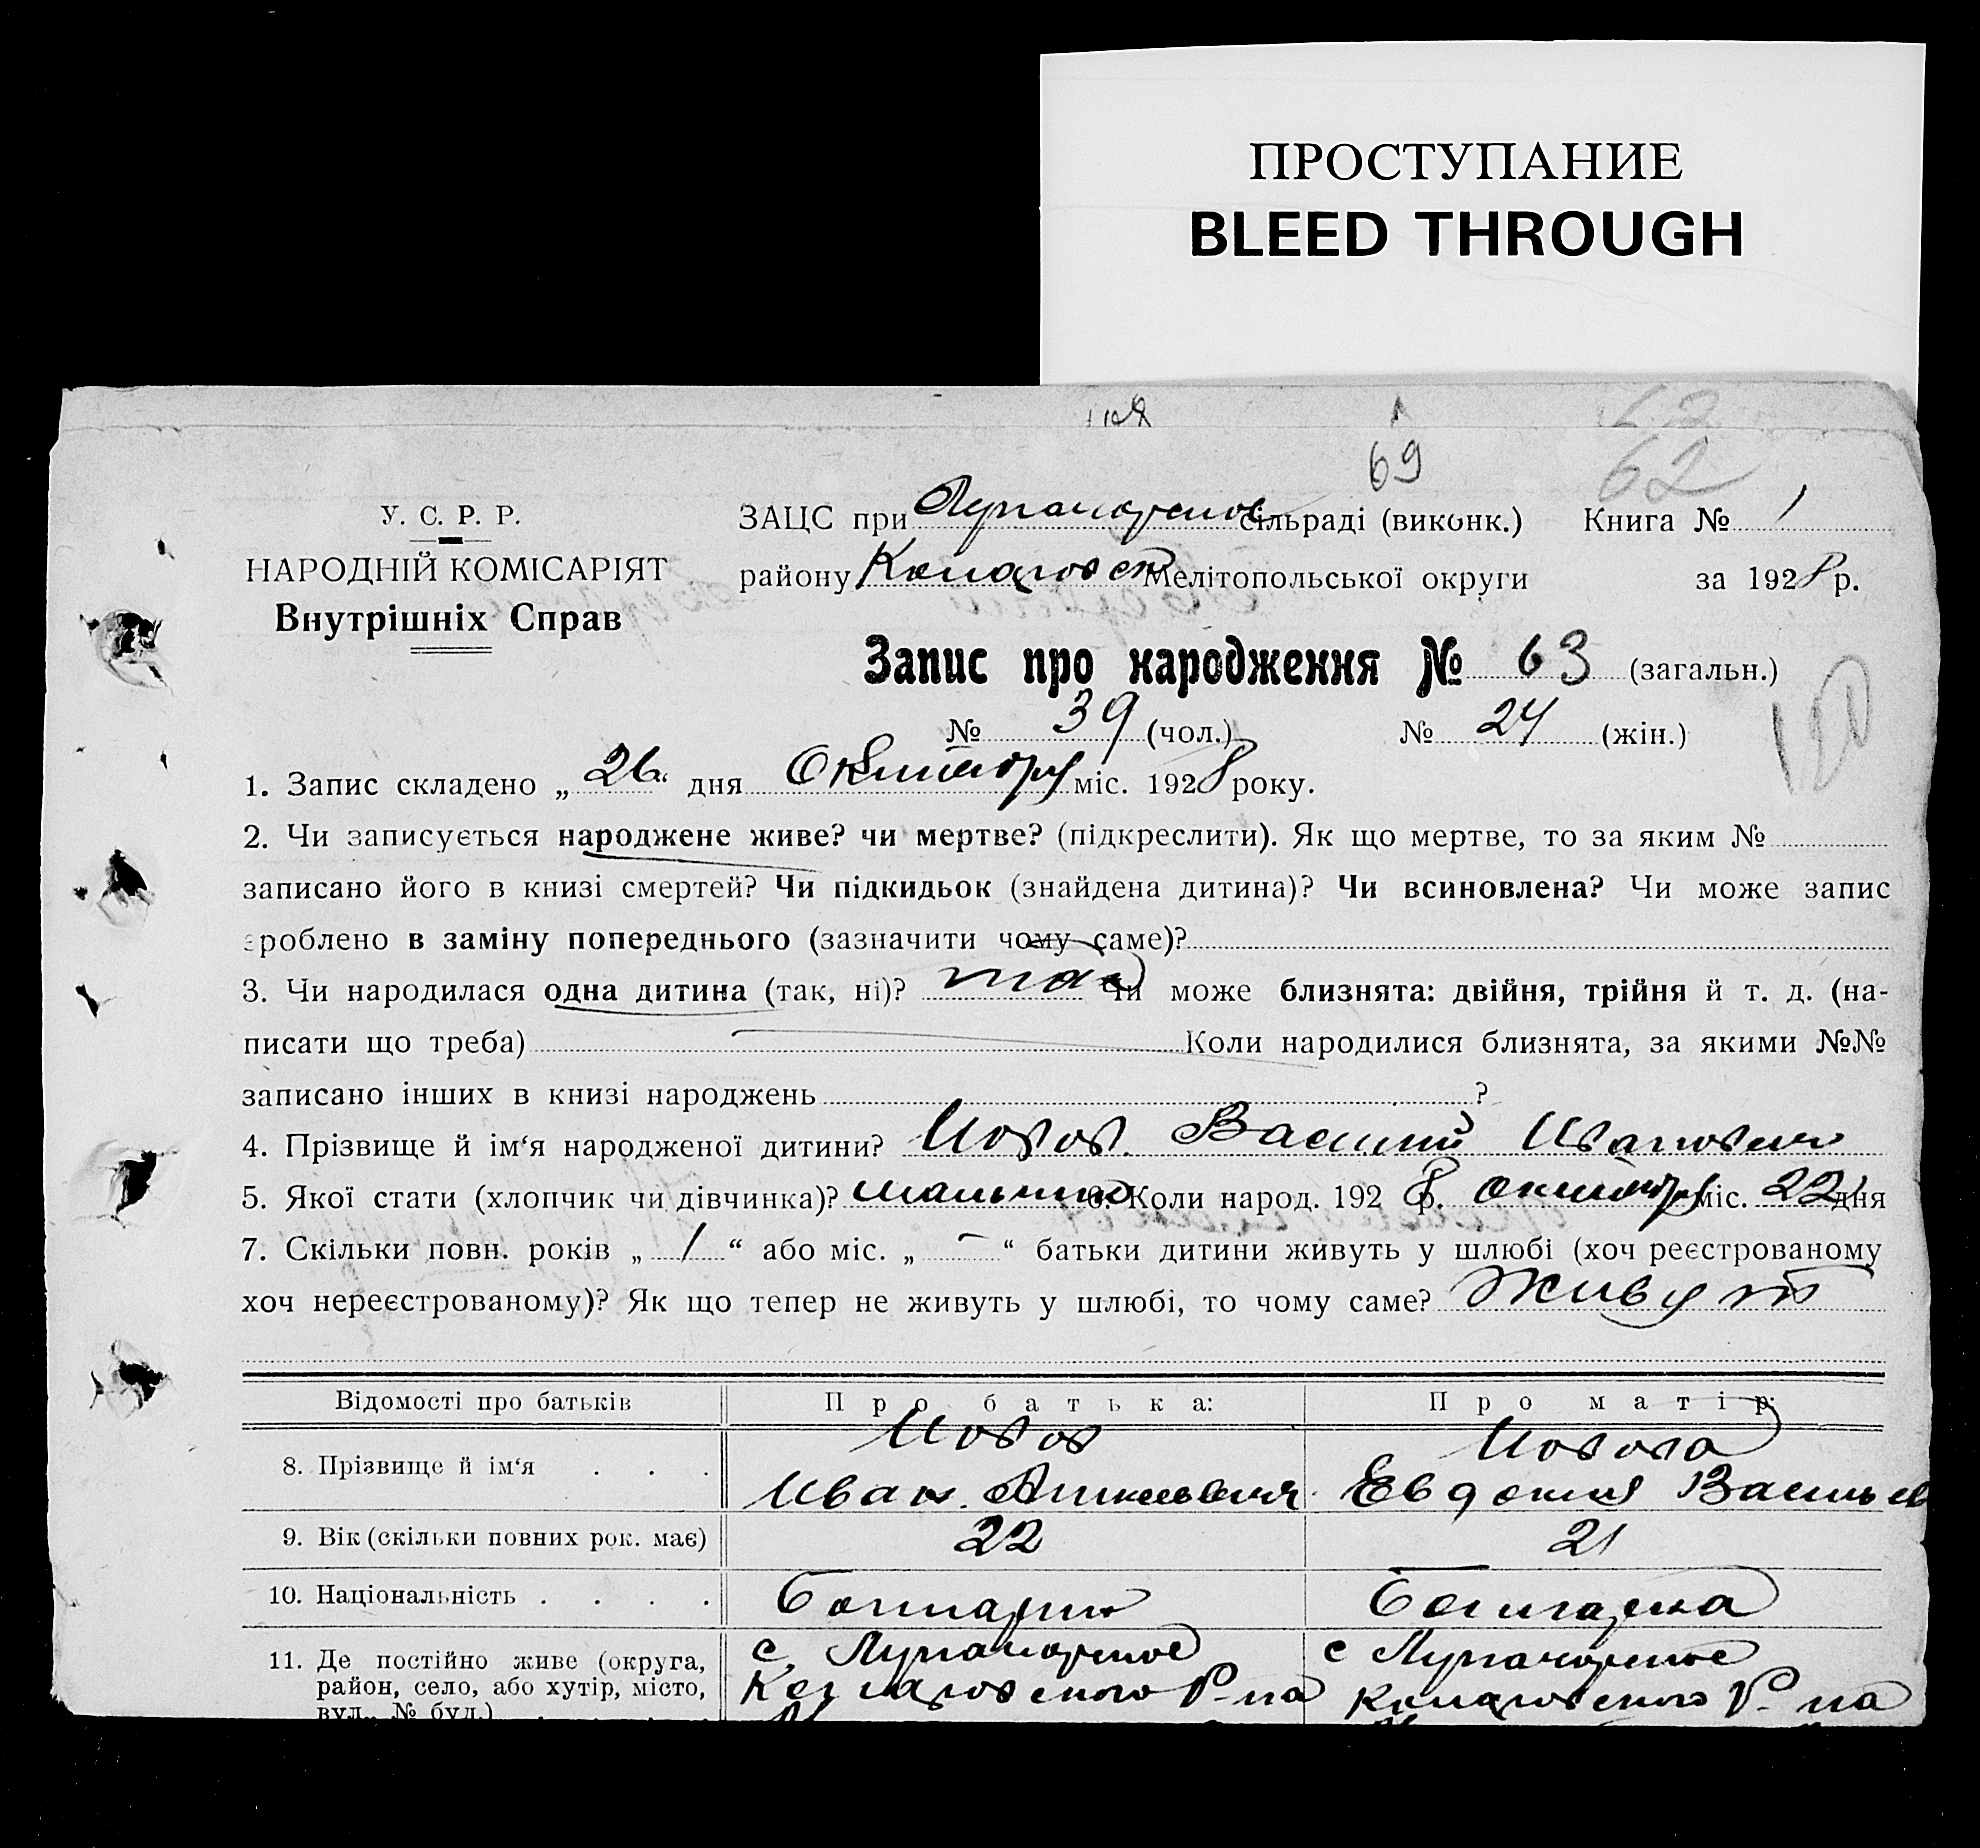 ПРОСТУПАНИЕ
BLEED THROUGH
69 62
У. С. Р. Р.
НАРОДНІЙ КОМІСАРІЯТ
Внутрішніх Справ
ЗАЦС при сільраді (виконк.) Книга № 1
району Мелітопольської округи за 1928 р.
Запис про народження № 63 (загальн.)
№ 39 (чол.) № 24 (жін.)
1. Запис складено „ 26 “ дня Октября міс. 1928 року.
2. Чи записується народжене живе? чи мертве? (підкреслити). Як що мертве, то за яким №
записано його в книзі смертей? Чи підкидьок (знайдена дитина)? Чи всиновлена? Чи може запис
зроблено в заміну попереднього (зазначити чому саме)?
3. Чи народилася одна дитина (так, ні)? так Чи може близнята: двійня, трійня й т. д. (на-
писати що треба) Коли народилися близнята, за якими №№
записано інших в книзі народжень ?
4. Прізвище й ім‘я народженої дитини? Василий Иванович
5. Якої стати (хлопчик чи дівчинка)? мальчик 6. Коли народ. 192 8 р. октября міс. 22 дня
7. Скільки повн. років „ 1 “ або міс. „ – “ батьки дитини живуть у шлюбі (хоч реєстрованому
хоч нереєстрованому)? Як що тепер не живуть у шлюбі, то чому саме? Живут
Відомості про батьків Про батька: Про матір:
8. Прізвище й ім‘я . . . Иван Евдокия
9. Вік (скільки повних рок. має) 22 21
10. Національність . . . . Болгарин Болгарка
11. Де постійно живе (округа, с. с
район, село, або хутір, місто, Р-на Р-на
вул., № буд.) . . . .